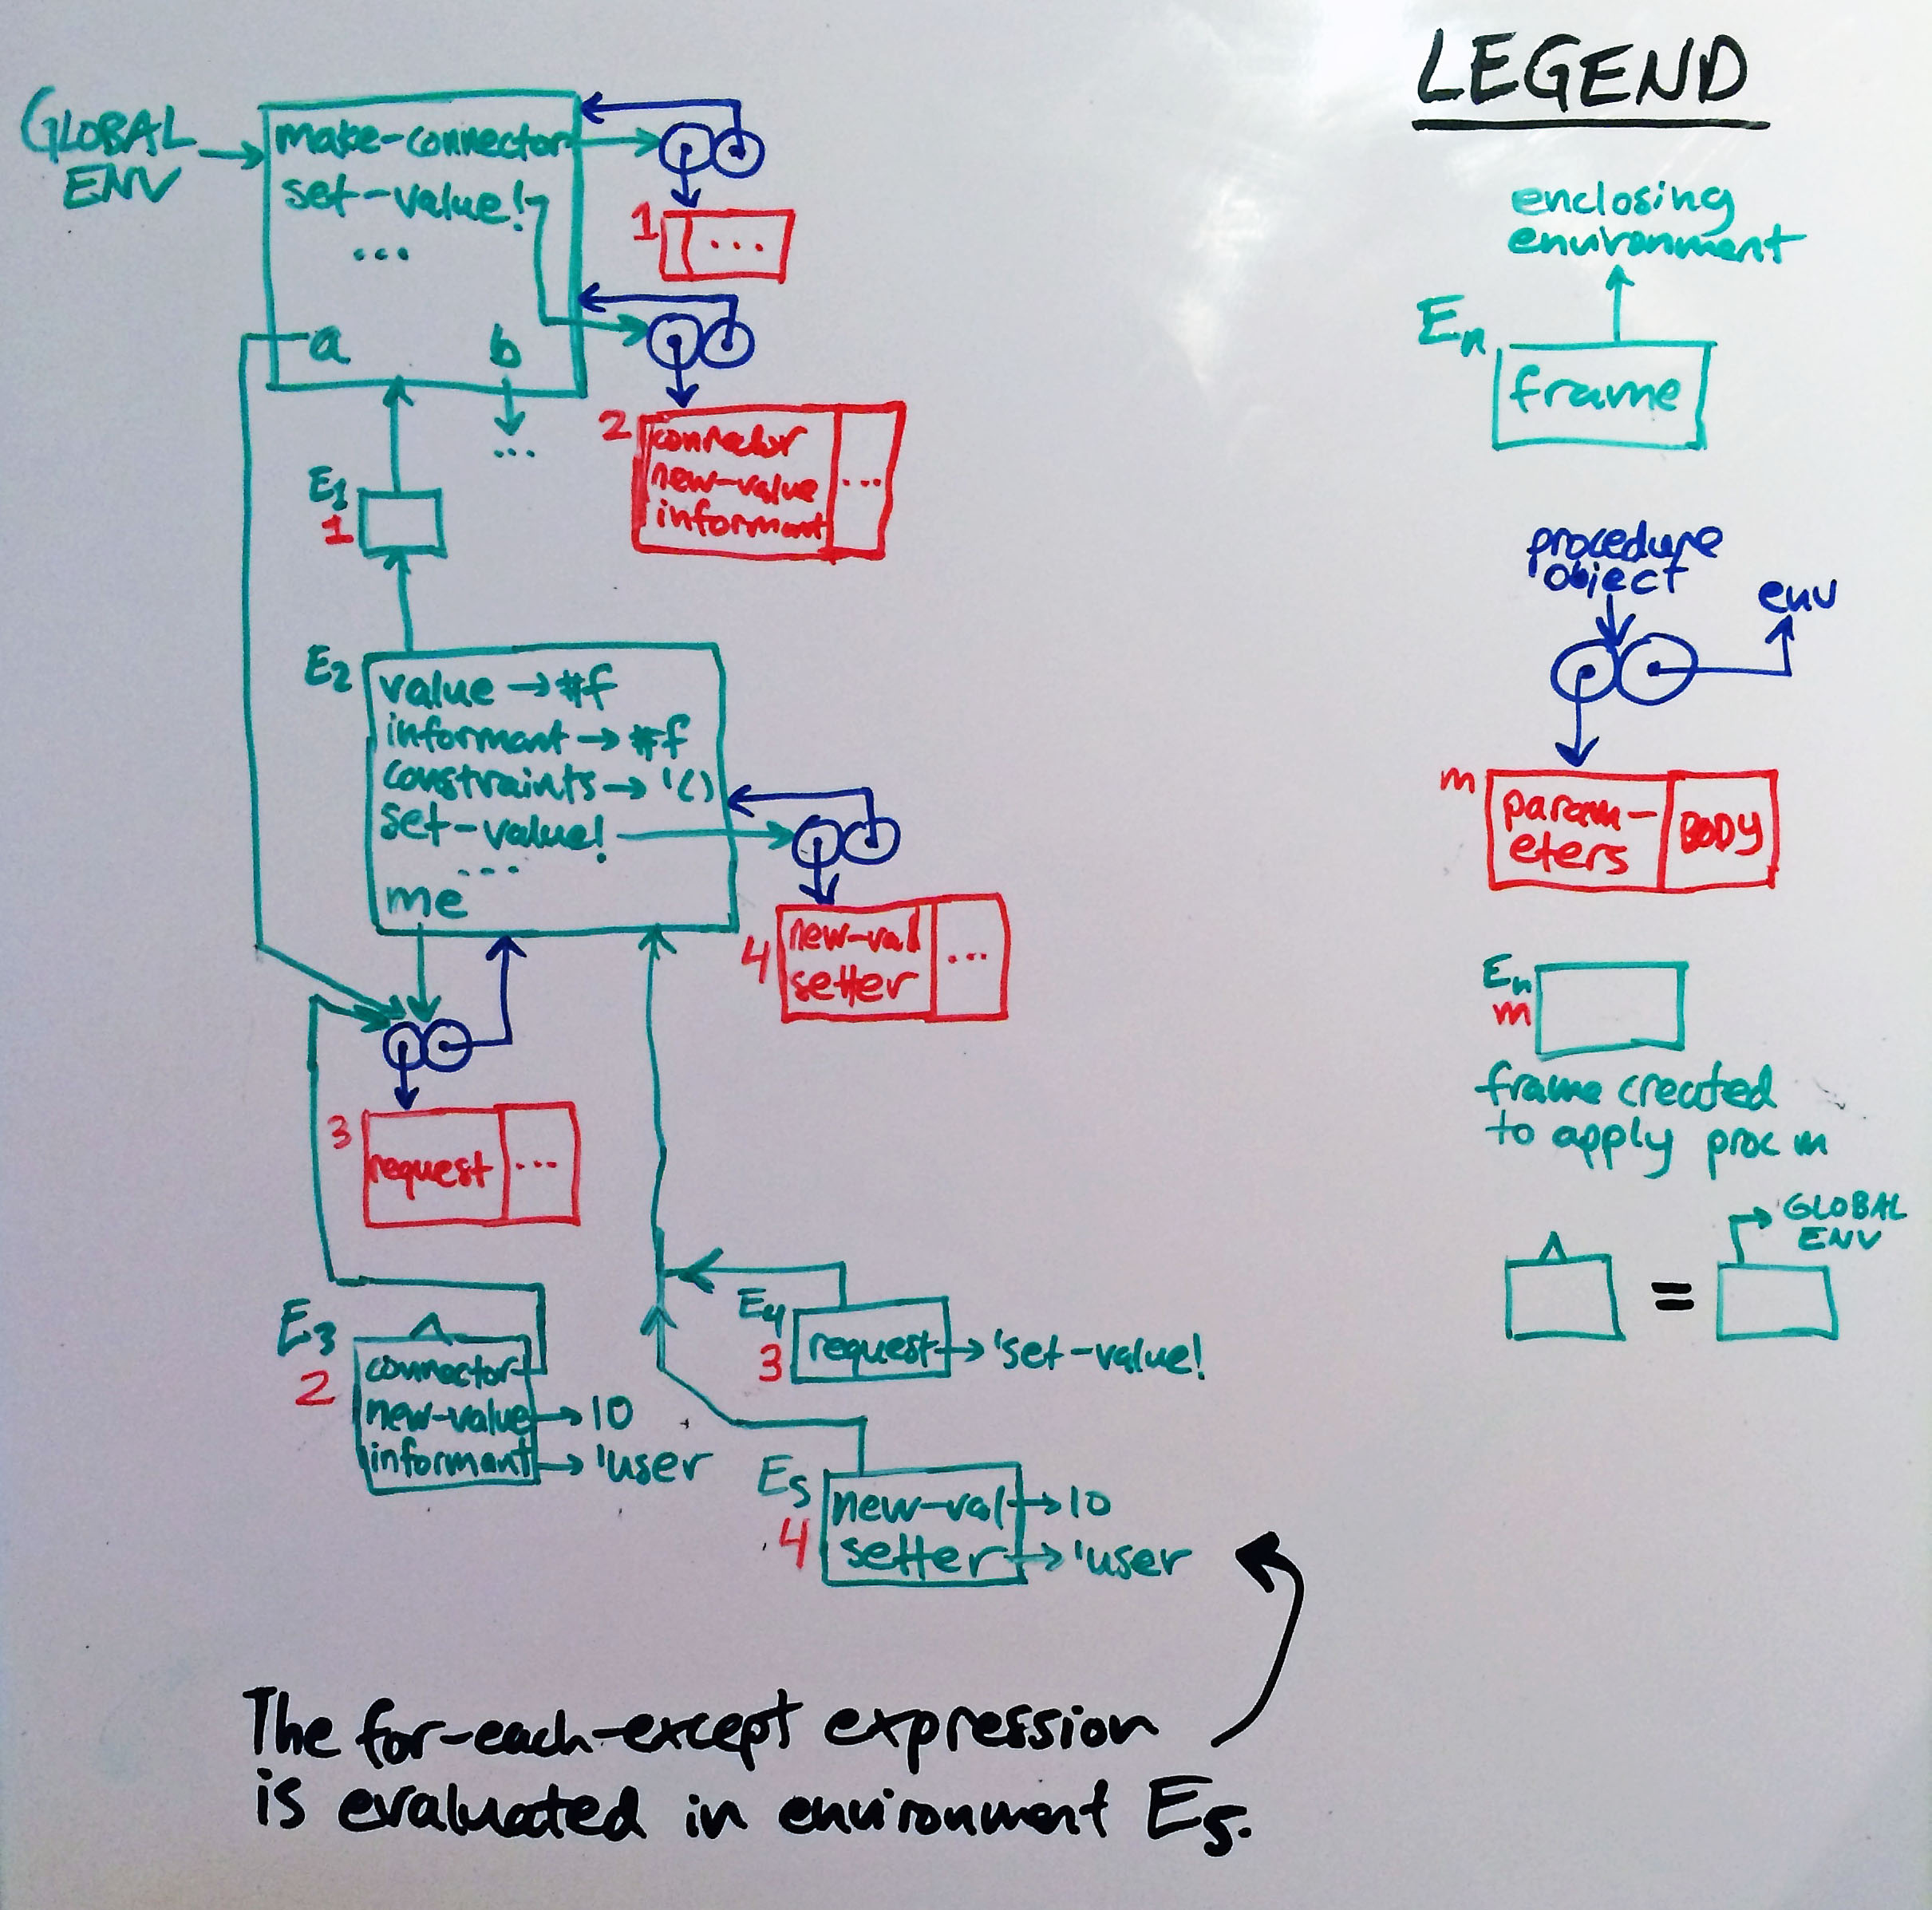 GLOBAL
ENV
make-connector
set-value!
...
a
b
...
1
...
2
connector
new-value
informant
...
E1
1
E2
value → #f
informant → #f
constraints → '()
set-value!
...
me
4
new-val
setter
...
3
request
...
E3
2
connector
new-value → 10
informant → 'user
E4
3
request → 'set-value!
E5
4
new-val → 10
setter → 'user
The for-each-except expression
is evaluated in environment E5.
LEGEND
enclosing
environment
En
frame
procedure
object
env
m
param-
eters
BODY
En
m
frame created
to apply proc m
=
GLOBAL
ENV